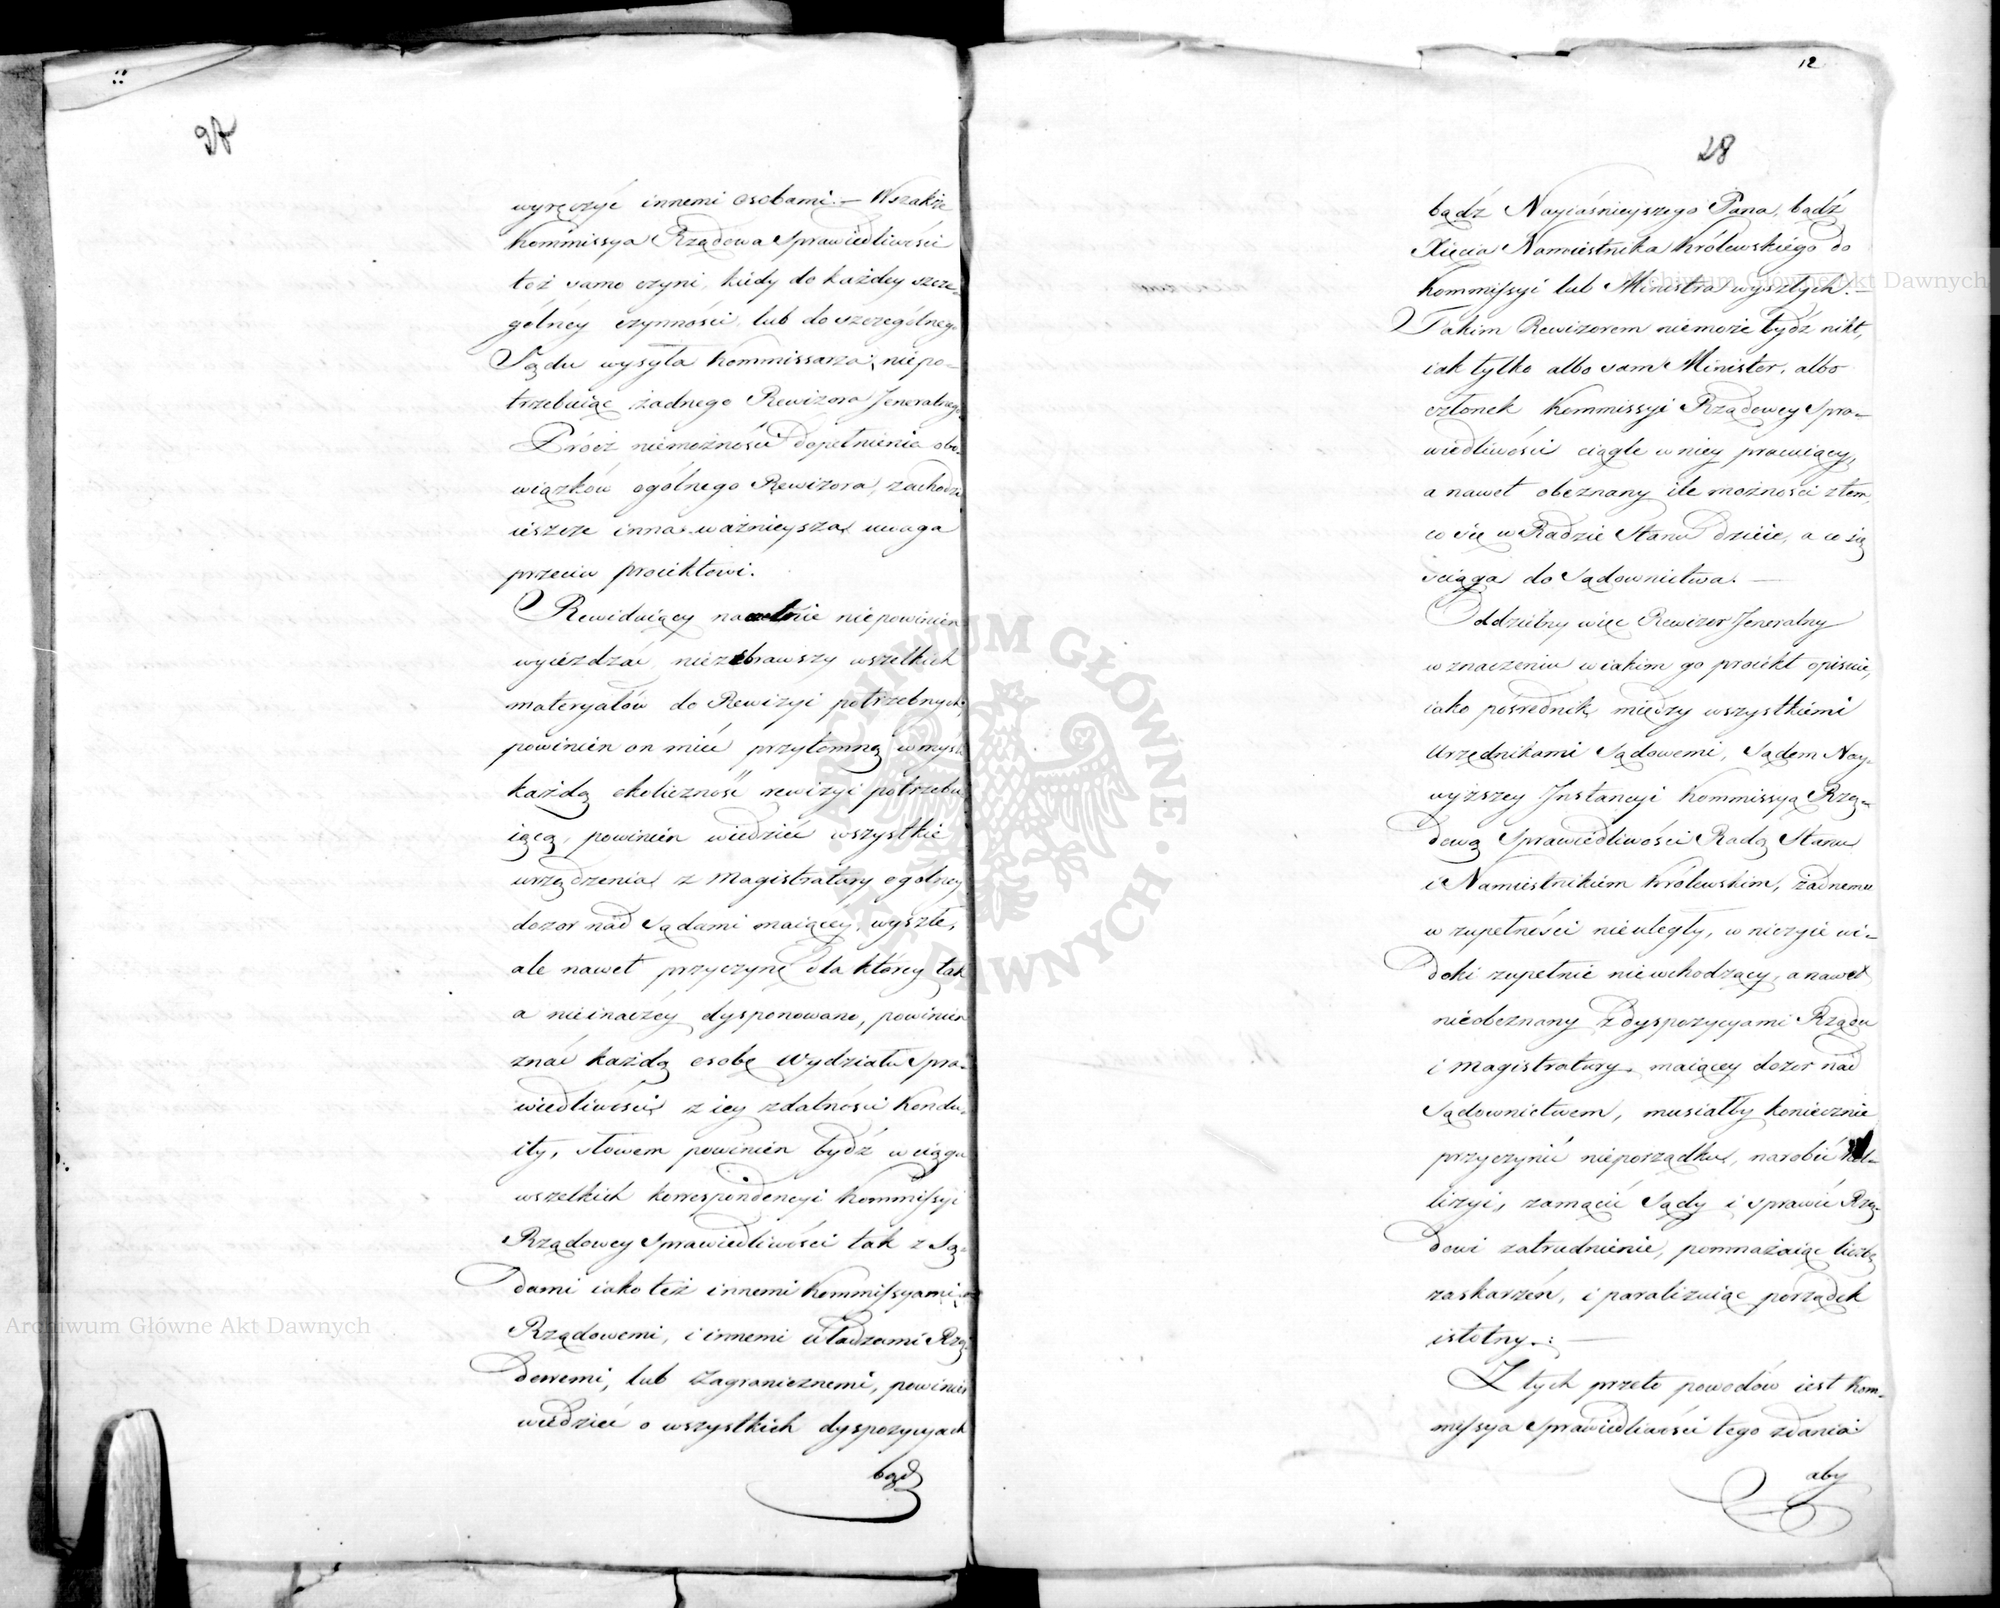 27
wyręczyć innemi osobami. – Wszakże
Kommissya Rządowa Sprawiedliwości
toż samo czyni, kiedy do każdey szcze-
gólney czynności, lub do szczególnego
Sądu wysyła Kommissarza, niepo-
trzebuiąc żadnego Rewizora Jeneralnego
Prócz niemożności dopełnienia obo-
wiązków ogólnego Rewizora, zachodzi
ieszcze inna ważnieysza uwaga
przeciw proiektowi.
Rewiduiący niepowinien
wyieżdżać, niezebrawszy wszelkich
materyałów do Rewizyi potrzebnych,
powinien on mieć przytomną w myśli
każdą okoliczność rewizyi potrzebu
iącą, powinien wiedzieć wszystkie
urządzenia z Magistratury ogólney
dozor nad Sądami maiącey, wyszłe,
ale nawet przyczynę dla którey tak
a nieinaczey dysponowano, powinien
znać każdą osobę Wydziału Spra-
wiedliwości z iey zdatności Kondu-
ity, słowem powinien bydź w ciągu
wszelkich korrespondencyi Kommissyi
Rządowey Sprawiedliwości tak z Są-
dami iako też innemi Kommissyami
Rządowemi, i innemi władzami Rzą-
dowemi, lub zagranicznemi, powinien
wiedzieć o wszystkich dyspozycyach
bądź
12
28
bądź Nayiaśnieyszego Pana, bądź
Xięcia Namiestnika Królewskiego do
Kommissyi lub Ministra wyszłych. –
Takim Rewizorem niemoże bydź nikt,
iak tylko albo sam Minister, albo
członek Kommissyi Rządowey Spra-
wiedliwości ciągle w niey pracuiący,
a nawet obeznany ile możności z tem,
co się w Radzie Stanu dzieie, a co się
ściąga do Sądownictwa. –
Oddzielny więc Rewizor Jeneralny
w znaczeniu w iakim go proiekt opisuie,
iako pośrednik między wszystkiemi
Urzędnikami Sądowemi, Sądem Nay-
wyższey Instancyi Kommissyą Rzą-
dową Sprawiedliwości Radą Stanu
i Namiestnikiem Królewskim, żadnemu
w zupełności nieuległy, w niczyie wi-
doki zupełnie niewchodzący, a nawet
nieobeznany z dyspozycyami Rządu
i Magistratury, maiącey dozor nad
Sądownictwem, musiałby koniecznie
przyczynić nieporządku, narobić kol-
lizyi, zamącić Sądy i sprawić Rzą-
dowi zatrudnienie, pomnażaiąc liczbę
zaskarżeń, i paraliżuiąc porządek
istotny. –
Z tych przeto powodów iest Kom-
missya Sprawiedliwości tego zdania
aby
Archiwum Główne Akt Dawnych
Archiwum Główne Akt Dawnych
ARCHIWUM GŁÓWNE AKT DAWNYCH